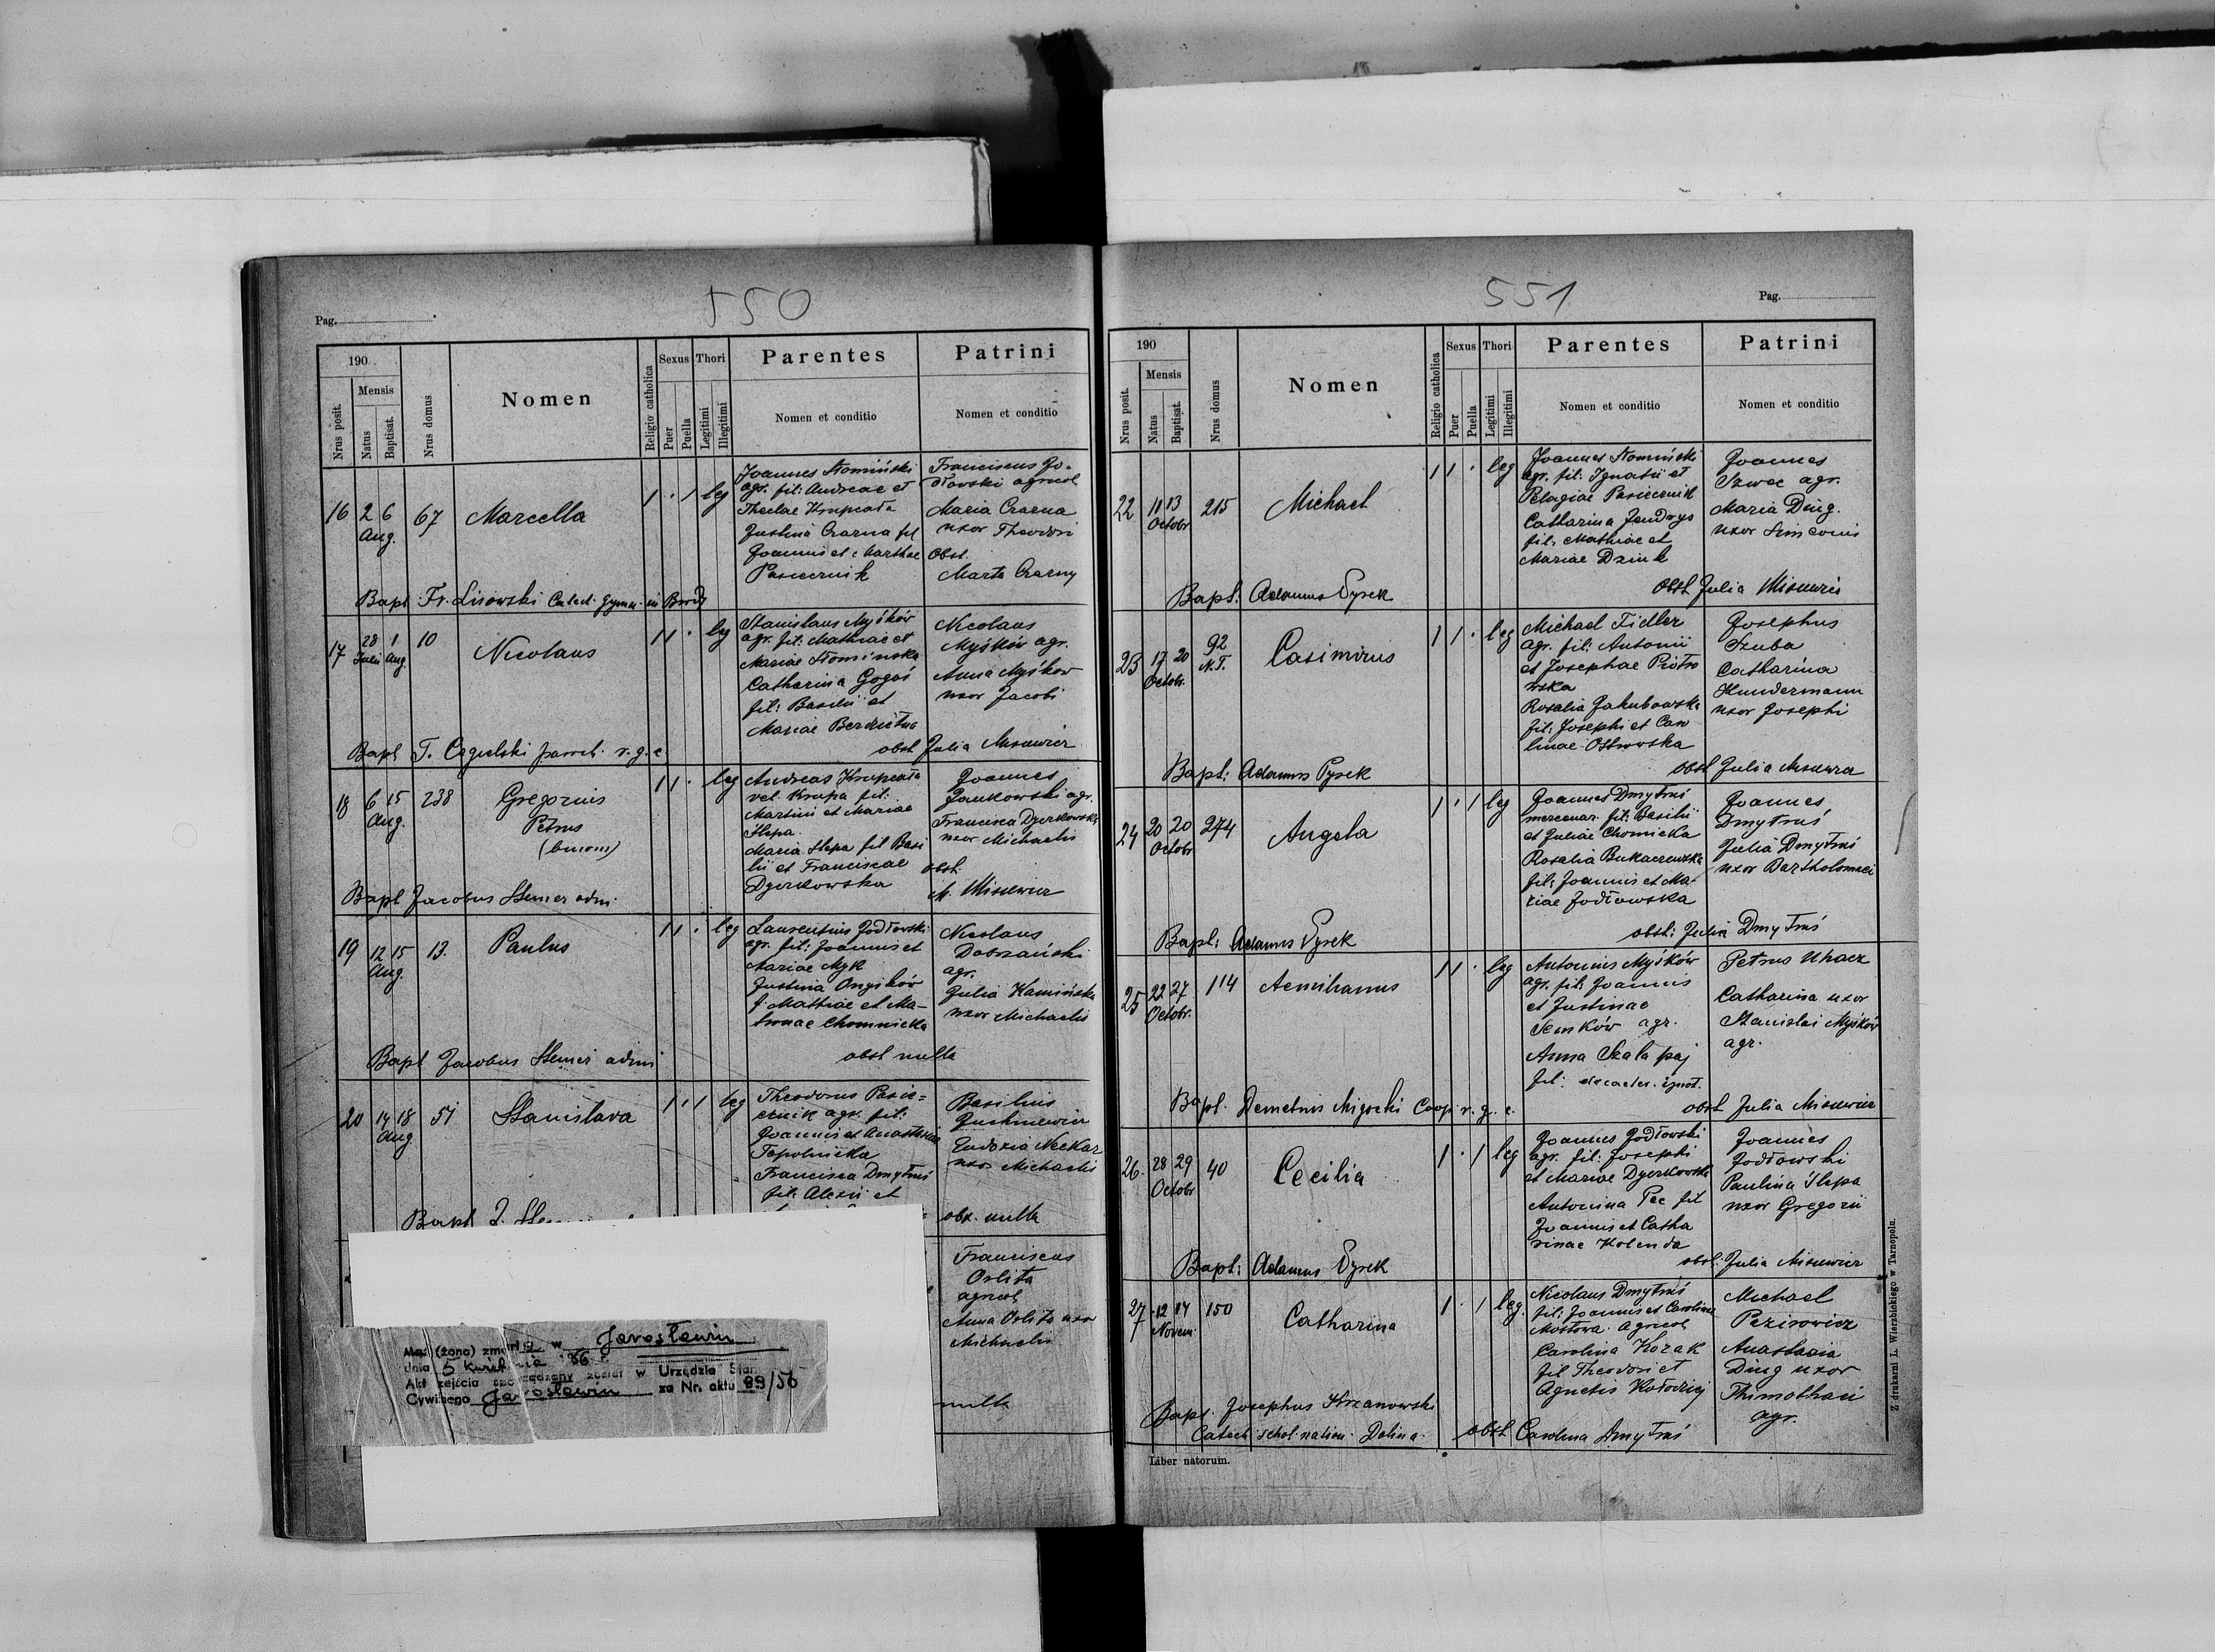 550
Pag.
190
Nrus posit.
Mensis
Natus
Baptisat.
Nrus domus
Nomen
Religio catholica
Sexus
Puer
Puella
Thori
Legitimi
Illegitimi
Parentes
Nomen et conditio
Patrini
Nomen et conditio
16
2 6
Aug.
67
Marcella
1 · 1 leg
Joannes Słomiński
agr. fil: Andreae et
Theclae Krupcała
Justina Czarna fil
Joannis et Marthae
Pasiecznik
Franciscus Jo-
dłowski agricol
Maria Czarna
uxor Theodori
Obst.
Marta Czarny
Bapt. Fr. Lisowski Catech. gymn. in Brody
17
28 1
Julii Aug.
10
Nicolaus
1 1 · leg
Stanislaus Myśków
agr. fil: Mathiae et
Mariae Słominska
Catharina Gogoś
fil: Basilii et
Mariae
Nicolaus
Myśków agr.
Anna Myśkow
uxor Jacobi
obst Julia Misiewicz
Bapt T. Cegielski paroch. r. g. c.
18
6 15
Aug.
238
Gregorius
Petrus
(binom)
1 1 · leg
Andreas Krupcała
vel Krupa fil:
Martini et Mariae
Slepa
Maria Slepa fil Basi
lii et Franciscae
Dyczkowska
Joannes
Jankowski agr.
Francisca Dyczkowska
uxor Michaelis
obst.
M. Misiewicz
Bapt Jacobus Slemer adm.
19
12 15
Aug.
13.
Paulus
1 1 · leg
Laurentius Jodłowski
agr. fil: Joannis et
Mariae Myk
Justina
f. Mathiae et Ma-
tronae Chomnicka
Nicolaus
Dobrzański
agr.
Julia Kamińska
uxor Michaelis
obst nulla
Bapt Jacobus Slemer adm
20
14 18
Aug.
51
Stanislava
1 · 1 leg
Theodorus Pasie=
cznik agr. fil:
Joannis et Anastasia
Topolnicka
Francisca Dmytruś
fil: Alexii et
Basilius
Juchniewicz
Eudoxia Neckar
uxor Michaelis
obst. nulla
Bapt J.
Franciscus
Orlita
agricol
Anna Orlita uxor
Michaelis
nulla
Mąż (żona) zmarła w Jarosławiu
dnia 5 kwietnia 1956 r.
Akt zejścia sporządzony został w Urzędzie Stanu
Cywilnego Jarosławiu za Nr. aktu 89/56
551
Pag.
190
Nrus posit.
Mensis
Natus
Baptisat.
Nrus domus
Nomen
Religio catholica
Sexus
Puer
Puella
Thori
Legitimi
Illegitimi
Parentes
Nomen et conditio
Patrini
Nomen et conditio
22
11 13
Octobr
215
Michael
1 1 · leg
Joannes Słomiński
agr. fil: Ignatii et
Pelagiae Pasiecznik
Catharina Jendrys
fil: Mathiae et
Mariae Dziuk
Joannes
Szwec agr.
Maria Ding.
uxor Simeonis
obst Julia Misiewicz
Bapt: Adamus Pyrek
23
17 20
Octobr.
92
N.T.
Casimirus
1 1 · leg
Michael Fidler
agr. fil: Antonii
et Josephae Piotro
wska
Rosalia Jakubowska
fil: Josephi et Caro
linae Ostrowska
Josephus
Szuba
Catharina
Hundermann
uxor Josephi
obst Julia Misiewicz
Bapt: Adamus Pyrek
24
20 20
Octobr
274
Angela
1 · 1 leg
Joannes Dmytruś
mercenar. fil: Basilii
et Juliae Chomicka
Rosalia Bukaczewska
fil: Joannis et Ma-
riae Jodłowska
Joannes
Dmytruś
Julia Dmytruś
uxor Bartholomaei
obst: Julia Dmytruś
Bapt: Adamus Pyrek
25
22 27
Octobr.
114
Aemilianus
1 1 · leg
Antonius Myśków
agr. fil: Joannis
et Justinae
Senków agr.
Anna Szałapaj
fil:
Petrus Uhacz
Catharina uxor
Stanislai Myśków
agr.
obst Julia Misiewicz
Bapt. Demetrius Migocki Coop. r. g. c.
26.
28 29
Octobr
40
Cecilia
1 · 1 leg
Joannes Jodłowski
agr. fil: Josephi
et Mariae Dyczkowska
Antonina Pec fil
Joannis et Catha
rinae Kolenda
Joannes
Jodłowski
Paulina Slepa
uxor Gregorii
obst: Julia Misiewicz
Bapt: Adamus Pyrek
27
12 14
Novem
150
Catharina
1 · 1 leg.
Nicolaus Dmytruś
fil: Joannis et Carolinae
Mostowa agricol
Carolina Kozak
fil Theodori et
Agnetis Kołodziej
Michael
Pezirowicz
Anastasia
Ding uxor
Thimothaei
agr.
Bapt. Josephus Krzanowski
Catech schol. nation. Dolina.
obst Carolina Dmytruś
Liber natorum.
Z drukarni L. Wierzbickiego w Tarnopolu.